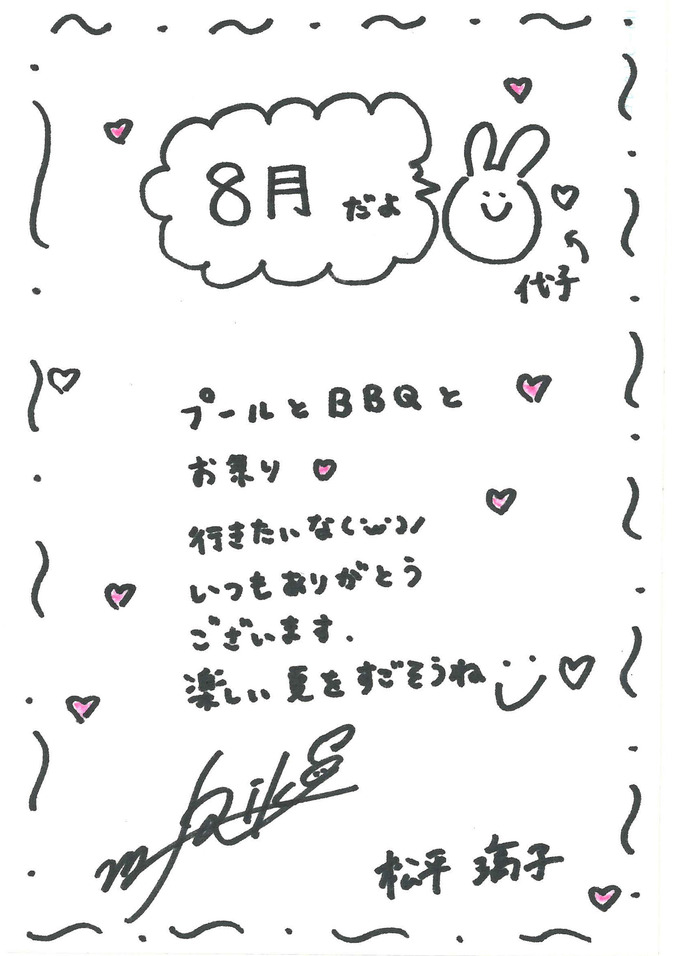 8月 だよ
代子
プールとBBQと
お祭り
行きたいな(˙ω˙)ﾉ
いつもありがとう
ございます.
楽しい夏をすごそうね
松平 璃子